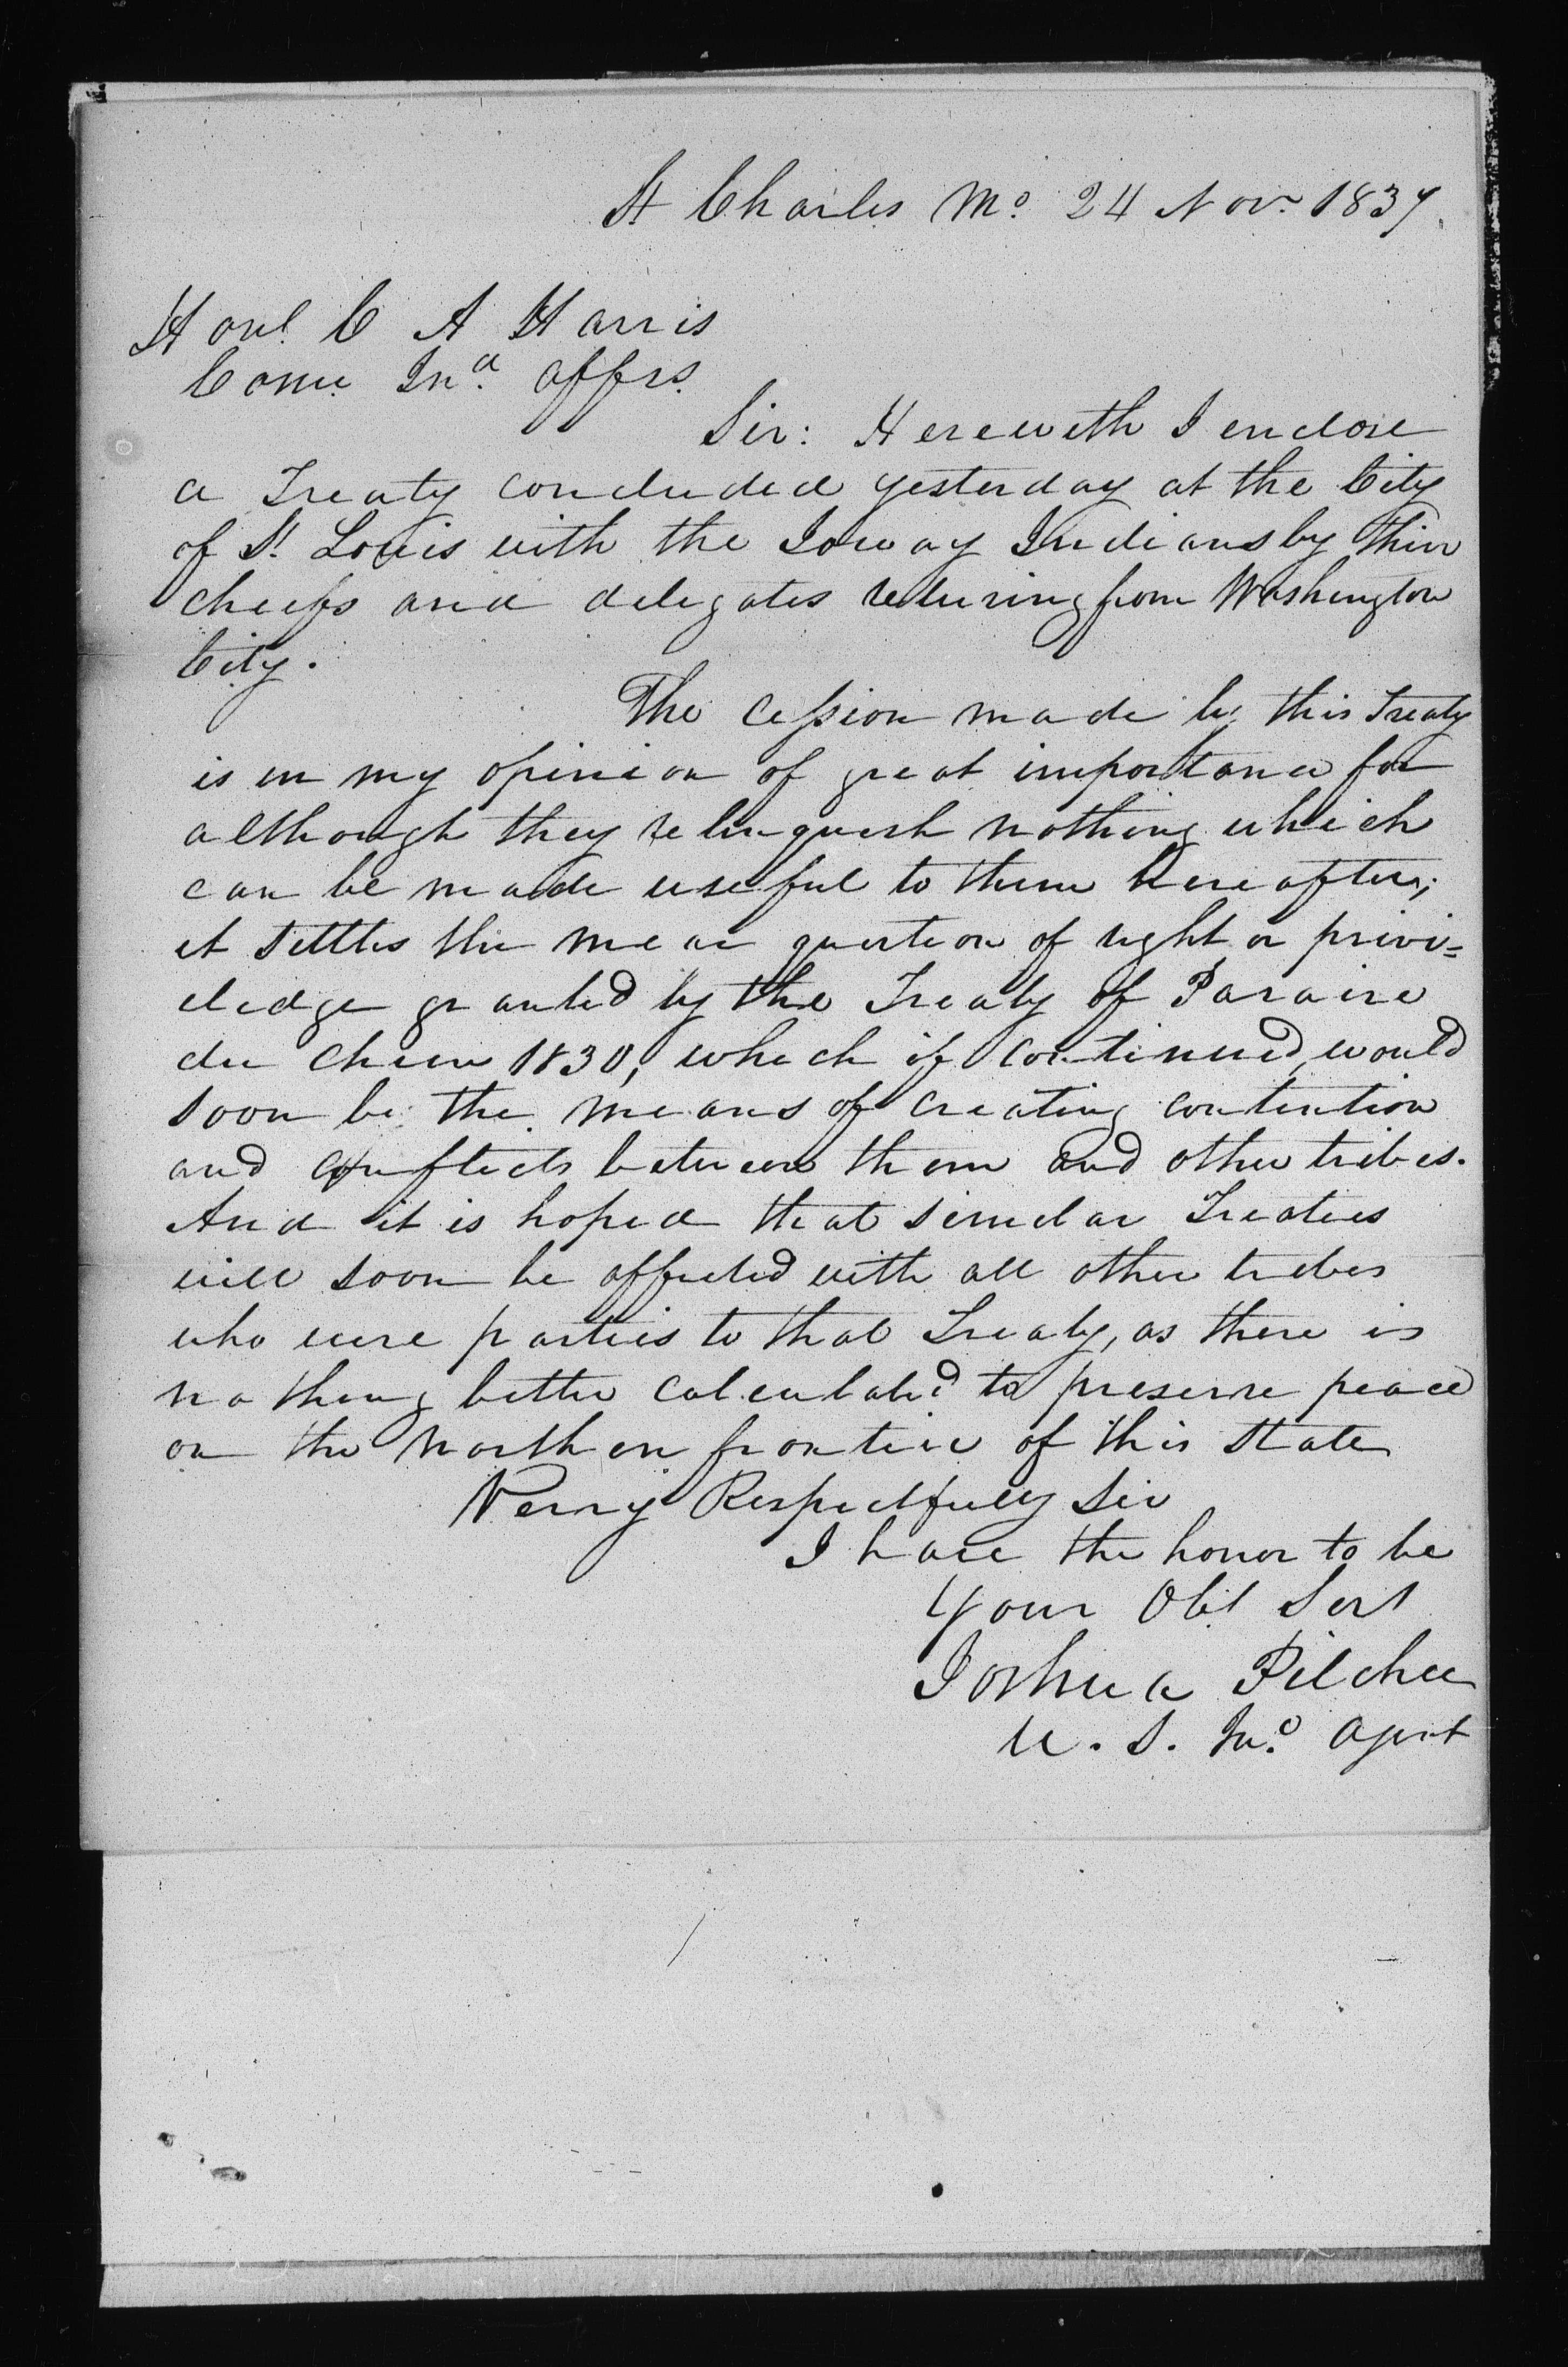 St Charles Mo. 24 Nov. 1837.
Honl. C A Harris
Comr. Ind. Affrs.
Sir: Herewith I enclose
a Treaty concluded yesterday at the City
of St. Louis with the Ioway Indians by thier
cheifs and delegates returing from Washington
City.
The Cession made by this Treaty
is in my opinion of great importance for
although they relinquish nothing which
can be made useful to them hereafter;
it settles the mear question of right or privi=
eledge granted by the Treaty of Paraire
du Chein 1830, which if continued, would
soon be the means of creating contention
and conflicts between them and other tribes.
And it is hoped that similar Treaties
will soon be affected with all other tribes
who were parties to that Treaty, as there is
nothing better calculated to preserve peace
on the northern frontier of this State
Verry Respectfully Sir
I have the honor to be
Your Obt Sert
Joshua Pilcher
U. S. Ind. Agent